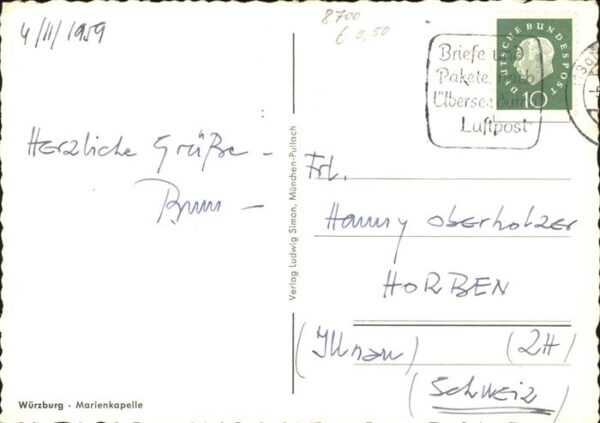 4/11/1959
8700
€ 0,50
DEUTSCHE BUNDESPOST
10
Briefe und
Pakete nach
Übersee durch
Luftpost
Herzliche Grüße –
Frl.
Hanny Oberholzer
HORBEN
(Illnau) (ZH)
(Schweiz)
Verlag Ludwig Simon, München-Pullach
Würzburg · Marienkapelle